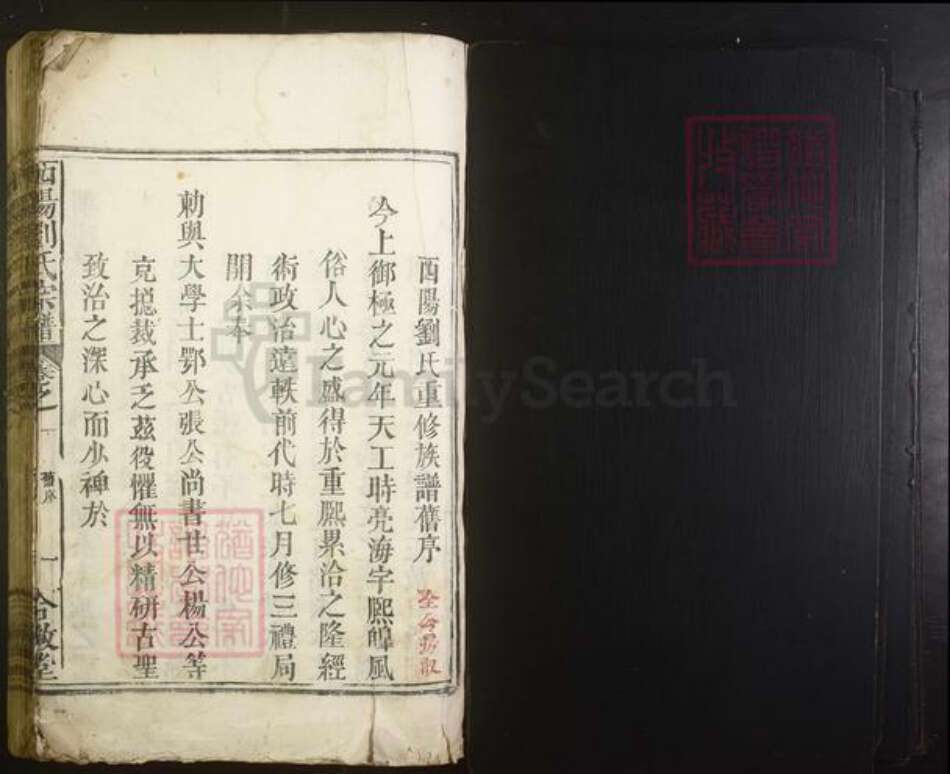 酉陽劉氏重修族譜舊序
今上御極之元年天工時亮海宇熙皥風
俗人心之盛得於重熙累洽之隆經
術政治遠軼前代時七月修三禮局
開余奉
勅與大學士鄂公張公尚書甘公楊公等
充摠裁承乏茲役懼無以精研古聖
致治之深心而少裨於
酉陽劉氏宗譜
卷之一
舊序
一
合敬堂
FamilySearch